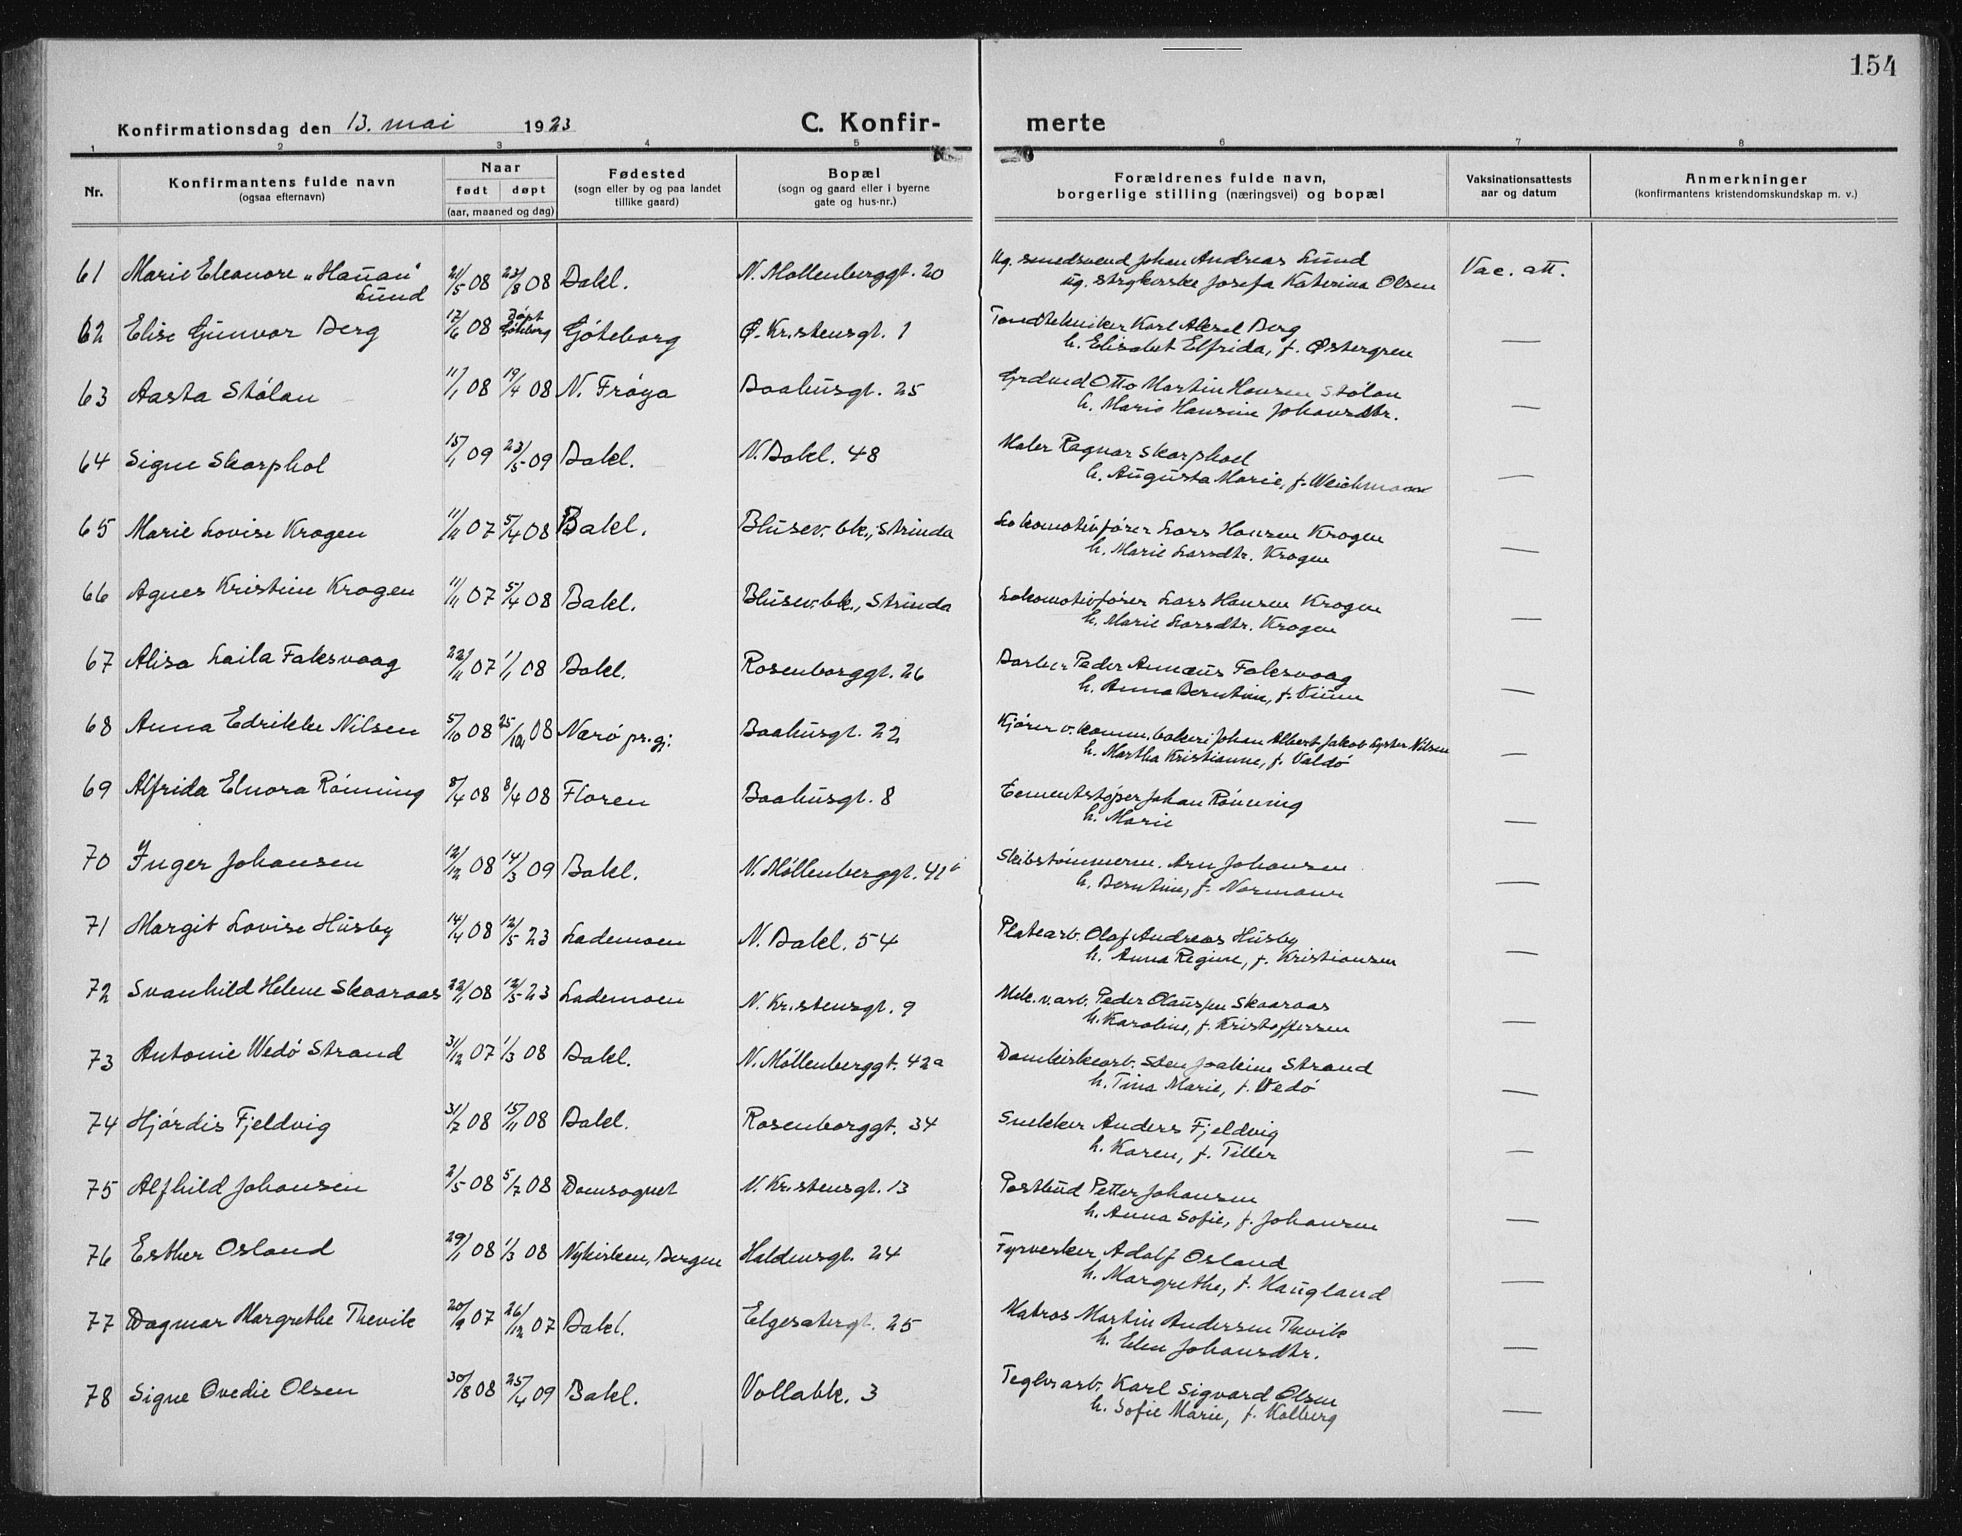 154
Konfirmationsdag den 13. mai 1923 C. Konfir- merte
1 2 3 4 5 6 7 8
Nr. Konfirmantens fulde navn (ogsaa efternavn) Naar født døpt (aar, maaned og dag) Fødested (sogn eller by og paa landet tillike gaard) Bopæl (sogn og gaard eller i byerne gate og hus-nr.) Forældrenes fulde navn, borgerlige stilling (næringsvei) og bopæl Vaksinationsattests aar og datum Anmerkninger (konfirmantens kristendomskundskap m. v.)
61 Marie Eleonore "Hauan" Lund 21/5 08 23/8 08 Bakl. N. Møllenberggt. 20 Ug. smedsvend Johan Andreas Lund
ug. strykerske Josefa Katerina Olsen Vac. att.
62 Elise Gunvor Berg 17/6 08 Døpt Göteborg Göteborg Ø. Kristensgt. 1 Tandtekniker Karl Aksel Berg
h. Elisabet Elfrida, f. Østergren —
63 Aasta Stølan 11/1 08 19/4 08 N. Frøya Baahusgt. 25 Grdmd Otto Martin Hansen Stølan
h. Marie Hansine Johansdtr. —
64 Signe Skarphol 15/1 09 23/5 09 Bakl. N. Bakl. 48 Maler Ragnar Skarphoel
h. Augusta Marie, f. Weichmann —
65 Marie Lovise Krogen 11/11 07 5/4 08 Bakl. Blusev. bk., Strinda Lokomotivfører Lars Hansen Krogen
h. Marie Larsdtr. Krogen —
66 Agnes Kristine Krogen 11/11 07 5/4 08 Bakl. Blusev. bk., Strinda Lokomotivfører Lars Hansen Krogen
h. Marie Larsdtr. Krogen —
67 Alisa Laila Falksvaag 22/11 07 1/1 08 Bakl. Rosenborggt. 26 Barber Peder Annæus Falksvaag
h. Anna Berntine, f. Vium —
68 Anna Edrikke Nilsen 5/10 08 25/10 08 Nærø pr.gj. Baahusgt. 22 Kjører v. komm. bakeri Johan Albert Jakob Lyster Nilsen
h. Martha Kristianne, f. Valdø —
69 Alfrida Elnora Rönning 8/4 08 8/4 08 Floren Baahusgt. 8 Cementstøper Johan Rönning
h. Marie —
70 Inger Johansen 12/12 08 14/3 09 Bakl. N. Møllenberggt. 41 Skibstømmerm. Arn Johansen
h. Berntine, f. Normann —
71 Margit Lovise Husby 14/4 08 12/5 23 Lademoen N. Bakl. 54 Platearb. Olaf Andreas Husby
h. Anna Regine, f. Kristiansen —
72 Svanhild Helene Skaaraas 22/1 08 12/5 23 Lademoen N. Kristensgt. 9 Mek. v. arb. Peder Olaussen Skaaraas
h. Karoline, f. Kristoffersen —
73 Antonie Wedø Strand 31/12 07 1/3 08 Bakl. N. Møllenberggt. 42a Domkirkearb. Sten Joakim Strand
h. Tina Marie, f. Vedø —
74 Hjørdis Fjeldvig 31/7 08 15/11 08 Bakl. Rosenborggt. 34 Snekker Anders Fjeldvig
h. Karen, f. Tiller —
75 Alfhild Johansen 2/5 08 5/7 08 Domsognet N. Kristensgt. 13 Postbud Petter Johansen
h. Anna Sofie, f. Johansen —
76 Esther Osland 29/1 08 1/3 08 Nykirken, Bergen Haldensgt. 24 Fyrverker Adolf Osland
h. Margrethe, f. Haugland —
77 Dagmar Margrethe Thevik 20/9 07 26/12 07 Bakl. Elgesætergt. 25 Matros Martin Andersen Thevik
h. Elen Johansdtr. —
78 Signe Ovedie Olsen 30/8 08 25/4 09 Bakl. Vollabk. 3 Teglv.arb. Karl Sigvard Olsen
h. Sofie Marie, f. Kolberg —